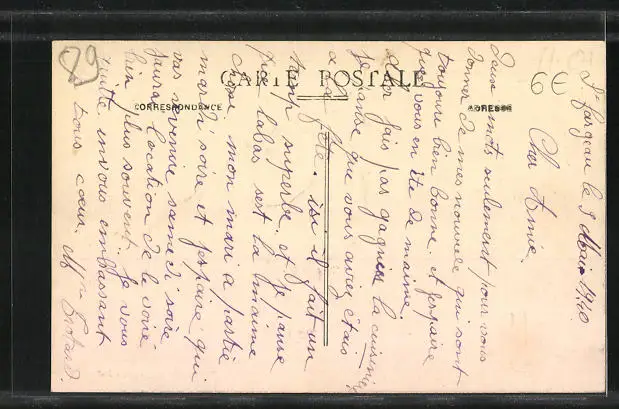 CARTE POSTALE
CORRESPONDANCE
ADRESSE
29
60
St fargeau le 9 Mai 1940
Cher Amie
Deux mots seulement pour vous
donner de mes nouvele qui sont
toujours bien bonne. et j'espaire
que vous en ete de maime.
fais pas gagner la cuisine
je panse que vous aviez etais
a la fete. isi il fait un
temp superbe. et je panse
que labas sest la maime
chose mon mari a partie
mardi soire et j'espaire qui
vas revenire samedi soire
jaurai location de le voire
bien plus souvent je vous
quitte invous embrassant
tous cœur. Mme